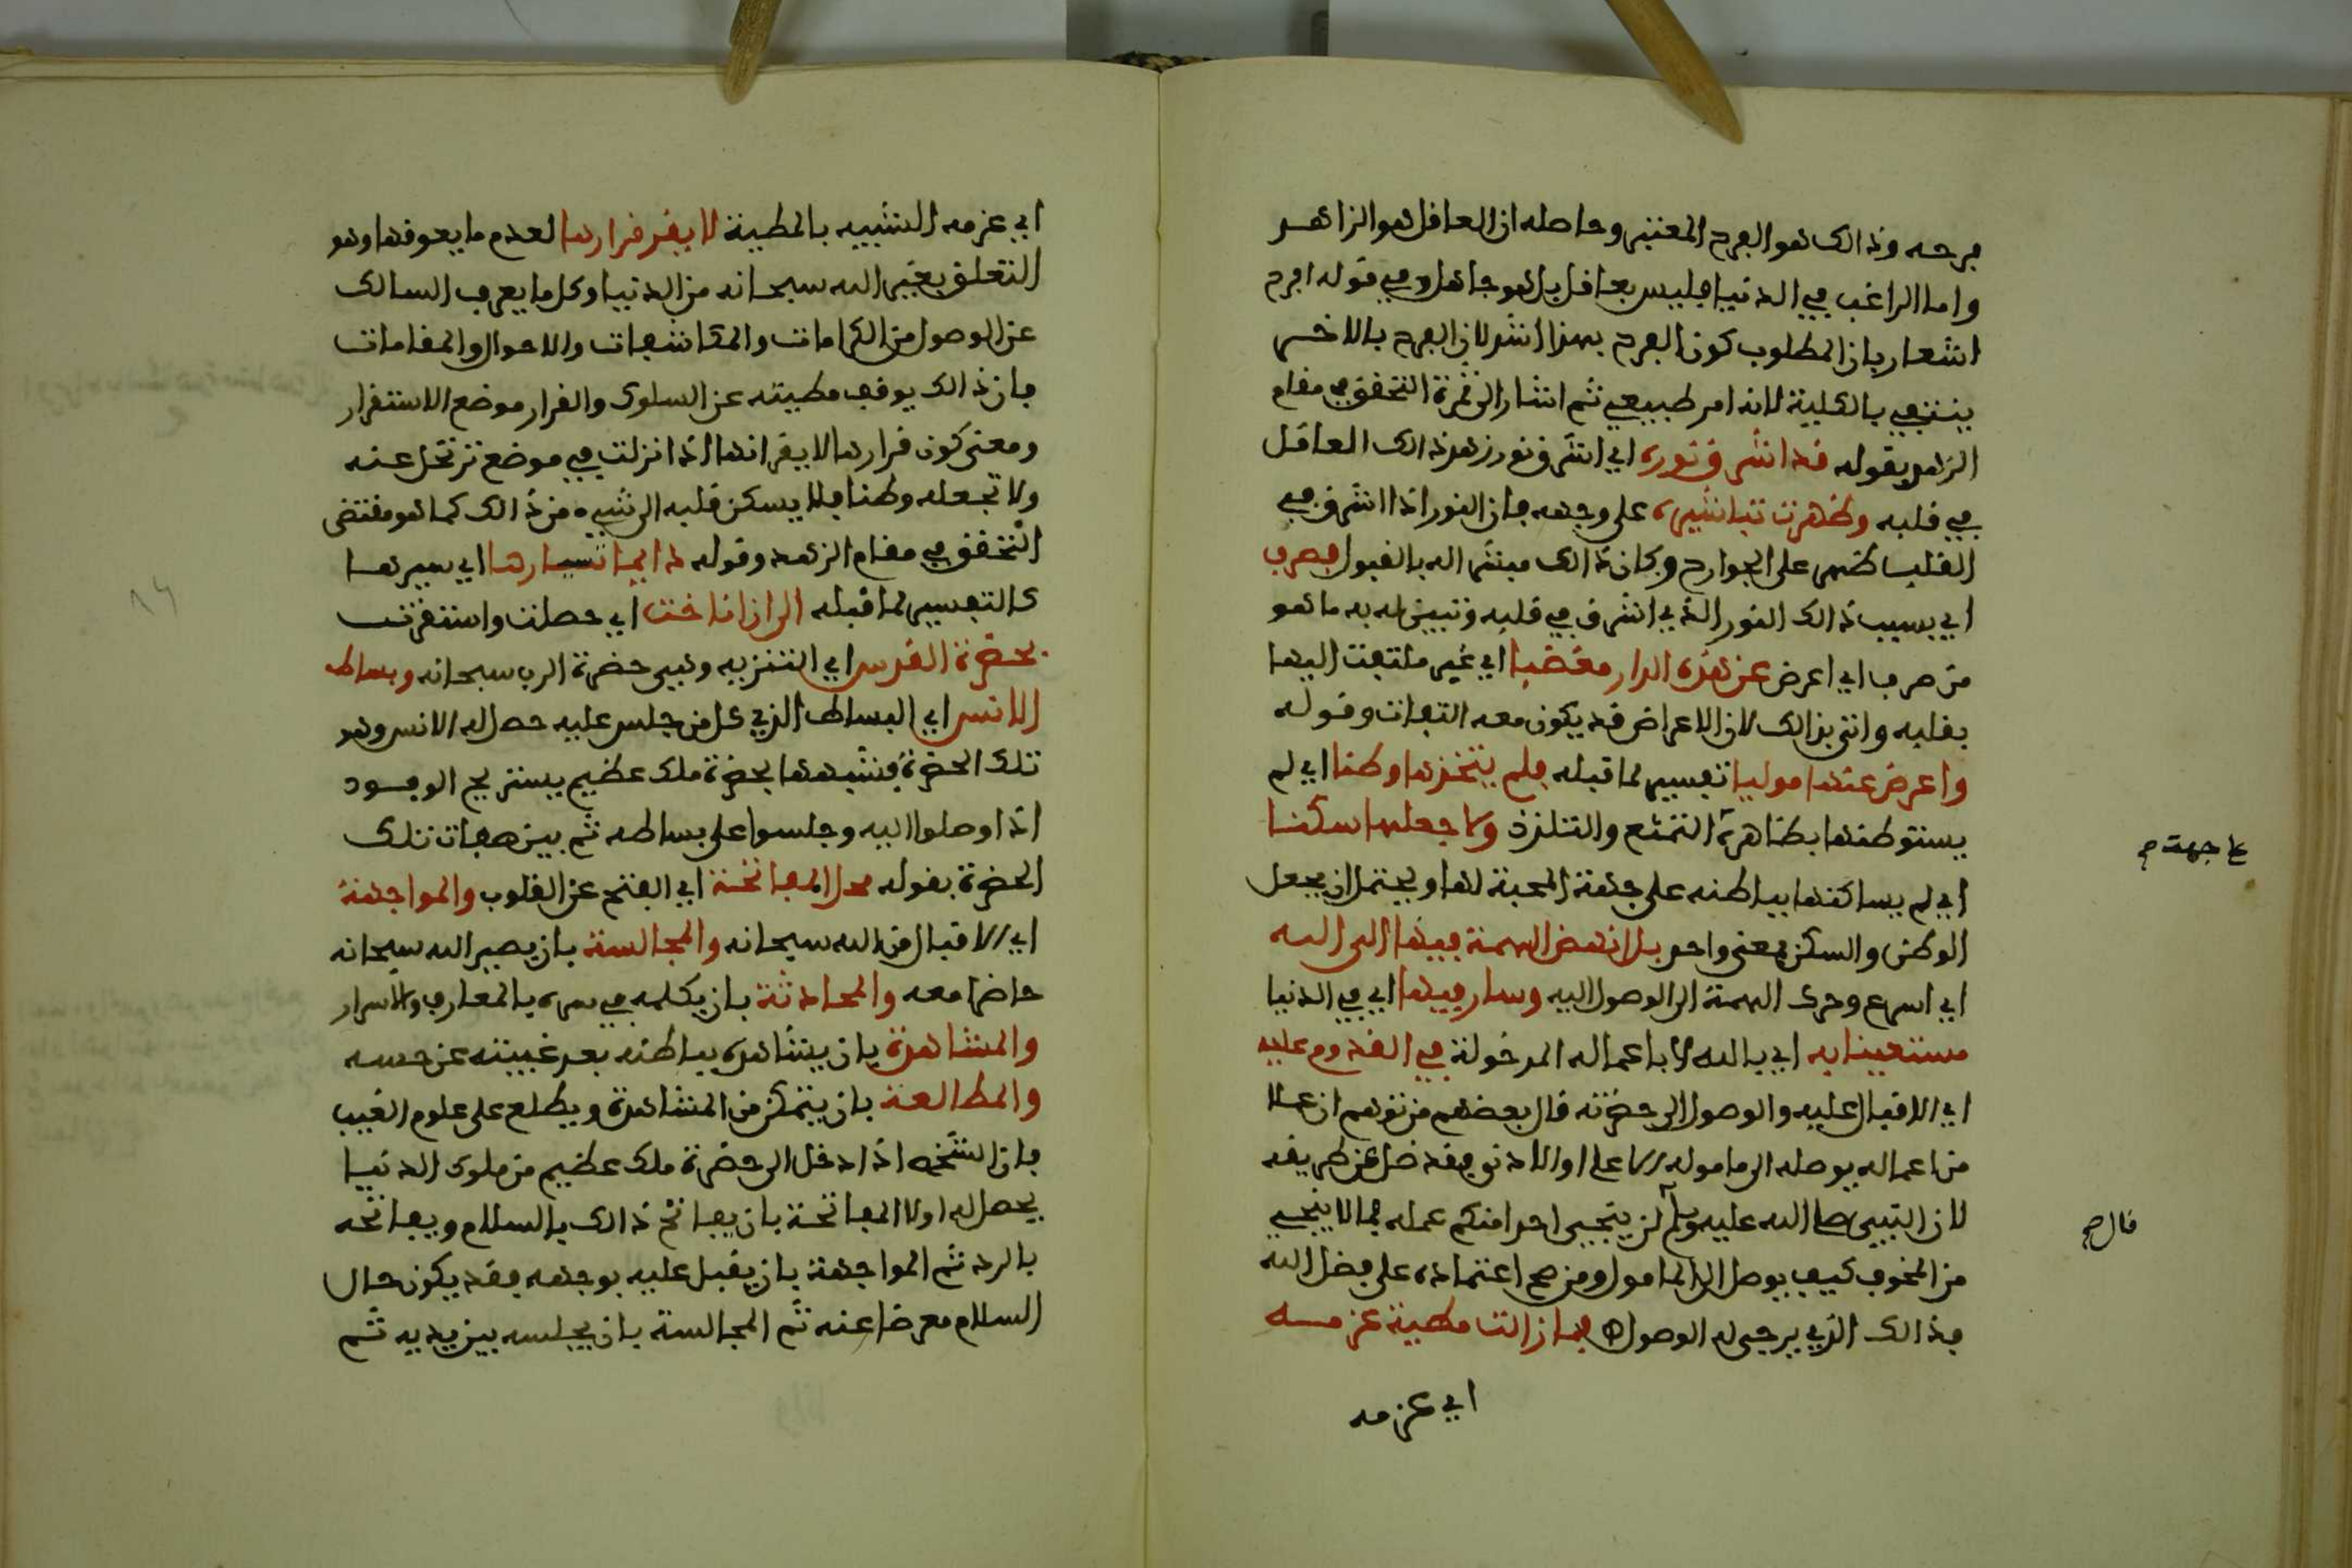 فرحه وذالك هو الفرح المعتبر وحاصله ان العاقل هو الزاهد
واما الراغب في الدنيا فليس بعاقل بل هو جاهل وفي قوله افرح
اشعار بان المطلوب كون الفرح بهذا اشد لان الفرح بالاخس
ينتفي بالكلية لانه امر طبيعي ثم اشار الى ثمرة التحقق في مقام
الزهد بقوله قد اشرق نوره اي اشرق نور زهد ذالك العاقل
في قلبه وظهرت تباشيره على وجهه فان النور اذا اشرق في
القلب ظهر على الجوارح وكان ذالك مبشرا له بالقبول فصرف
اي بسبب ذالك النور الذي اشرق في قلبه وتبين له به ما هو
من صرف اي اعرض عن هذه الدار مغضيا اي غير ملتفت اليها
بقلبه واتى بذالك لان الاعراض قد يكون معه التفات وقوله
واعرض عنها موليا تفسير لما قبله فلم يتخذها وطنا اي لم
يستوطنها بظاهره التمتع والتلذذ ولا جعلها سكنا
على جهت صح
اي لم يساكنها بباطنه على جهة المحبة لها ويحتمل ان يجعل
الوطن والسكن بمعنى واحد بل انهض الهمة فيها الى الله
اي اسرع وحرك الهمة الى الوصول اليه وسار فيها اي في الدنيا
مستعينا به اي بالله لا باعماله المدخولة في القدوم عليه
اي الاقبال عليه والوصول الى حضرته قال بعضهم من توهم ان عملا
من اعماله يوصله الى ماموله الاعلى او الادنى فقد ضل عن طريقه
لان النبي صلى الله عليه وسلم لن ينجي احدا منكم عمله فما لا ينجي
قال صح
من المخوف كيف يوصل الى المامول ومن صح اعتماده على فضل الله
فذالك الذي يرجى له الوصول فما زالت مطية عزمه
اي عزمه
اي عزمه الشبيه بالمطية لا يقر قرارها لعدم ما يعوقها وهو
التعلق بغير الله سبحانه من الدنيا وكل ما يعرف السالك
عن الوصول من الكرامات والمكاشفات والاحوال والمقامات
فان ذالك يوقف مطيته عن السلوك والقرار موضع الاستقرار
ومعنى كون قرارها لا يقر انها اذا نزلت في موضع ترتحل عنه
ولا تجعله وطنا فلا يسكن قلبه الى شيء من ذالك كما هو مقتضى
التحقق في مقام الزهد وقوله دائما تسيارها اي سيرها
كالتفسير لما قبله الى ان اناخت اي حصلت واستقرت
بحضرة القدس اي التنزيه وهي حضرة الرب سبحانه وبساط
الانس اي البساط الذي كل من جلس عليه حصل له الانس وهو
تلك الحضرة فشبهها بحضرة ملك عظيم يستريح الوفود
اذا وصلوا اليه وجلسوا على بساطه ثم بين صفات تلك
الحضرة بقوله محل المفاتحة اي الفتح عن القلوب والمواجهة
اي الاقبال من الله سبحانه والمجالسة بان يصير الله سبحانه
حاضرا معه والمحادثة بان يكلمه في سره بالمعارف والاسرار
والمشاهدة بان يشاهده بباطنه بعد غيبته عن حسه
والمطالعة بان يتمكن من المشاهدة ويطلع على علوم الغيب
فان الشخص اذا دخل الى حضرة ملك عظيم من ملوك الدنيا
يحصل له اولا المفاتحة بان يفاتح ذالك بالسلام ويفاتحه
بالرد ثم المواجهة بان يقبل عليه بوجهه فقد يكون حال
السلام معرضا عنه ثم المجالسة بان يجلسه بين يديه ثم